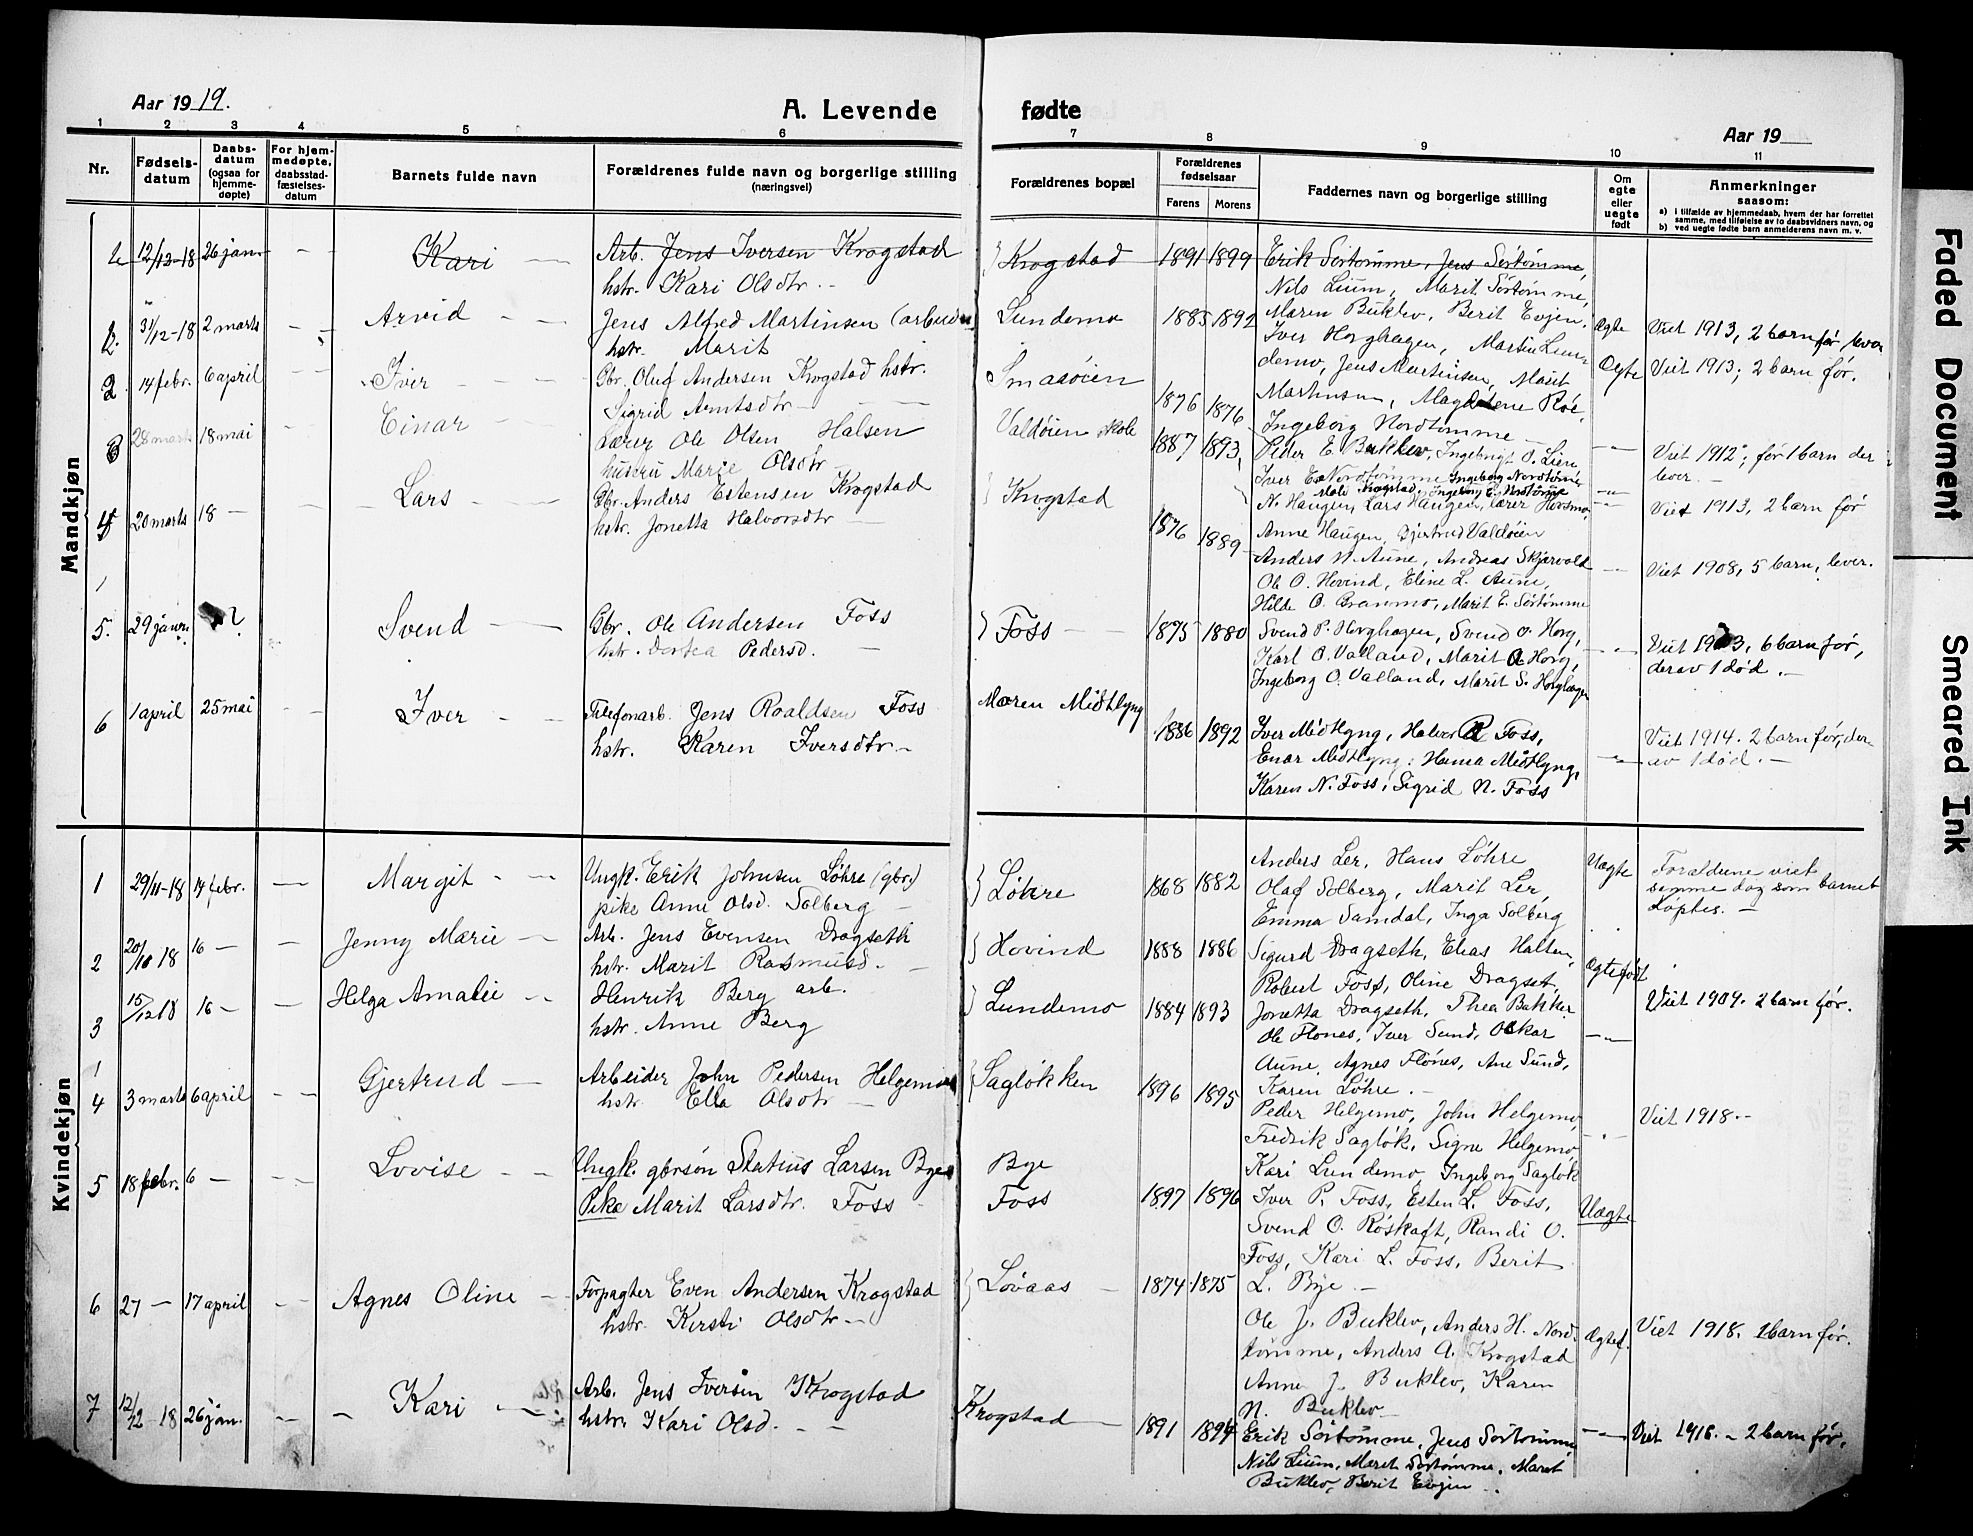 Aar 1919.
A. Levende
fødte
Aar 19
1 2 3 4 5 6
7 8 9 10 11
Nr. Fødsels-datum Daabs-datum (ogsaa for hjemme-døpte) For hjem-medøpte, daabsstad-fæstelses-datum Barnets fulde navn Forældrenes fulde navn og borgerlige stilling (næringsvei)
Forældrenes bopæl Forældrenes fødselsaar Farens Morens Faddernes navn og borgerlige stilling Om egte eller uegte født Anmerkninger saasom:
a) i tilfælde av hjemmedaab, hvem der har forrettet samme, med tilføielse av to daabsvidners navn, og
b) ved uegte fødte barn anmelderens navn m. v.
Mandkjøn
12/12-18 26 jan. Kari Arb. Jens Iversen Krogstad
hstr. Kari Olsdtr.
Krogstad 1891 1899 Erik Sørtømme, Jens Sørtømme,
Nils Lium, Marit Sørtømme,
Maren Buklev, Berit Evjen.
31/12-18 2 marts Arvid Jens Alfred Martinsen (arbeider)
hstr. Marit
Lundemo 1885 1892 Iver Horghagen, Martin Lun
demo, Jens Martinsen, Marit
Martinsen, Magdalene Röe
Ingeborg Nordtømme
Ægte Viet 1913, 2 barn før, lever
2 14 febr. 6 april Iver Gbr. Oluf Andersen Krogstad hstr.
Sigrid Arntsdtr
Smasøien 1876 1876 Peder E. Buklev, Ingebrigt O. Lien
Iver E. Nordtømme Ingeborg Nordtømme
Mali Krogstad, Ingeborg E. Nordtømme
Ægte Viet 1913; 2 barn før.
3 28 marts 18 mai Einar Lærer Ole Olsen Halsen
hustru Marie Olsdtr
Valdøien skole 1887 1893 N. Haugen, Lars Haugen, lærer Hovsmo,
Anne Haugen, Gjertrud Valdøien
Viet 1912; før 1 barn der
lever.
4 20 marts 18 Lars Gbr. Anders Estensen Krogstad
hstr. Jonetta Halvorsdtr
Krogstad 1876 1889 Anders N. Aune, Andreas Skjervold
Ole O. Hovind, Eline L. Aune,
Hilde O. Granmo, Marit E. Sørtømme
Viet 1913, 2 barn før
Viet 1908, 5 barn, lever.
5. 29 januar ? Svend Gbr. Ole Andersen Foss
hstr. Dortea Pedersd.
Foss 1875 1880 Svend P. Horghagen, Svend O. Horg,
Karl O. Valland, Marit O. Horg,
Ingeborg O. Valland, Marit S. Horghagen
Viet 1903, 6 barn før,
derav 1 død.
6 1 april 25 mai Iver Telefonarb. Jens Roaldsen Foss
hstr. Karen Iversdtr
Møren Midtlyng 1886 1892 Iver Midtlyng, Halvor R. Foss,
Einar Midtlyng, Hanna Midtlyng,
Karen N. Foss, Sigrid N. Foss
Viet 1914. 2 barn før, der-
av 1 død.
Kvindekjøn
1 29/11-18 14 febr. Margit Ungk. Erik Johnsen Løhre (gbr.)
pike Anne Olsd. Solberg
Løhre 1868 1882 Anders Ler, Hans Løhre
Olaf Solberg, Marit Ler,
Emma Samdal, Inga Solberg
Uægte Forældrene viet
samme dag som barnet
døptes.
2 20/10 18 16 Jenny Marie Arb. Jens Evensen Dragseth
hstr. Marit Rasmusd.
Hovind 1888 1886 Sigurd Dragseth, Elias Halten,
Robert Foss, Oline Dragset,
Jonetta Dragseth, Thea Bakker
Ægtefødt Viet 1909. 2 barn før.
3 15/12 18 16 Helga Amalie Henrik Berg arb.
hstr. Anne Berg
Lundemo 1884 1893 Ole Flones, Iver Sund, Oskar
Aune, Agnes Flónes, Ane Sund,
Karen Løhre.
4 3 marts 6 april Gjertrud Arbeider John Pedersen Helgemo
hstr. Ella Olsdtr
Sagløkken 1896 1895 Peder Helgemo, John Helgemo,
Fredrik Sagløk, Signe Helgemo,
Kari Lundemo, Ingeborg Sagløk
Viet 1918.
5 18 febr. 6 Lovise Ungk. gbrsøn Statius Larsen Bye
Pike Marit Larsdtr. Foss
Bye
Foss 1897 1896 Iver P. Foss, Esten L. Foss,
Svend O. Røskaft, Randi O.
Foss, Kari L. Foss, Berit
L. Bye.
Uægte
6 27 17 april Agnes Oline Forpagter Even Andersen Krogstad
hstr. Kirsti Olsdtr
Løvaas 1874 1875 Ole J. Buklev, Anders H. Nord-
tømme, Anders A. Krogstad
Anne J. Buklev, Karen
N. Buklev
Ægtef. Viet 1918. 1 barn før.
7 12/12 18 26 jan. Kari Arb. Jens Iversen Krogstad
hstr. Kari Olsd.
Krogstad 1891 1894 Erik Sørtømme, Jens Sørtømme
Nils Lium, Marit Sørtømme, Maret
Buklev, Berit Evjen
Viet 1918. 2 barn før.
Faded Document
Smeared Ink